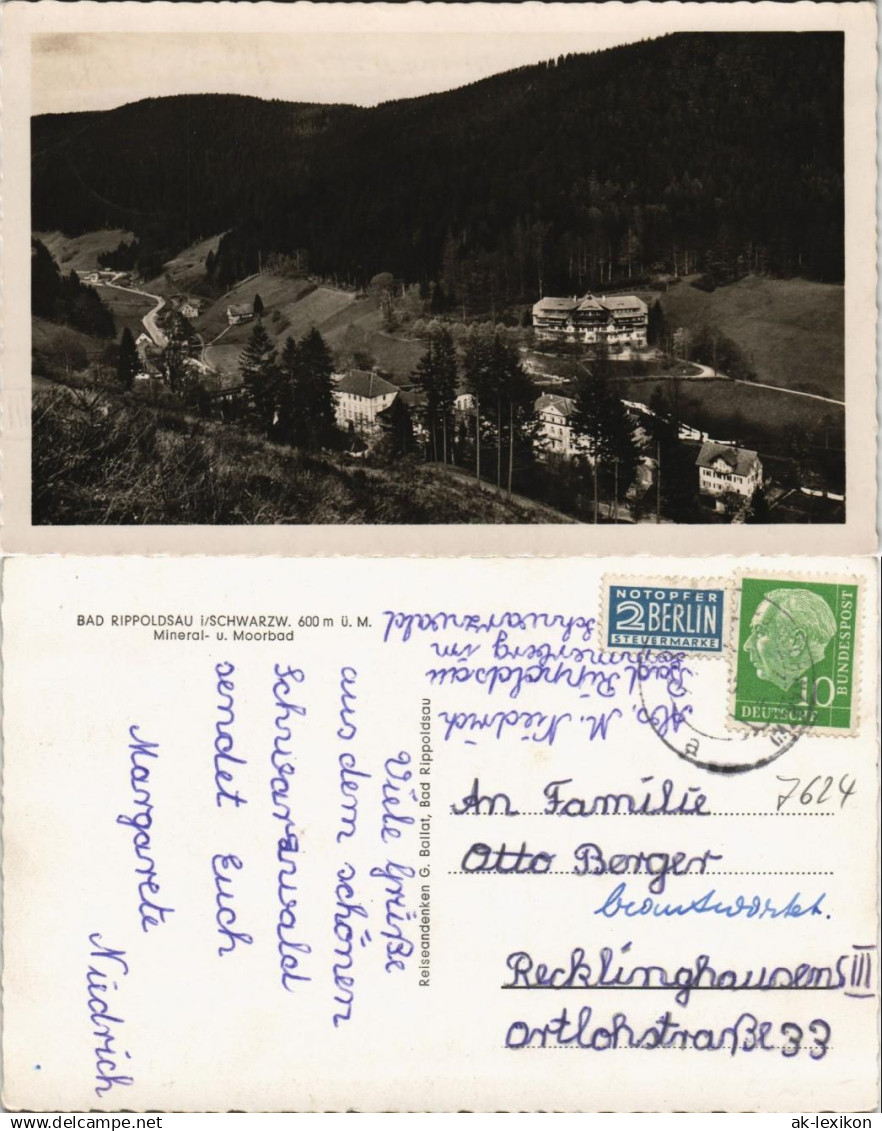 BAD RIPPOLDSAU i/SCHWARZW. 600 m ü. M.
Mineral- u. Moorbad
Viele Grüße
aus dem schönen
Schwarzwald
sendet Euch
Margarete
Niedrich
Reiseandenken G. Ballat, Bad Rippoldsau
Abs M. Niedrich
Bad Rippoldsau
Sommerberg im
Schwarzwald
NOTOPFER
2 BERLIN
STEUERMARKE
DEUTSCHE
BUNDESPOST
10
a
An Familie
Otto Berger
beantwortet.
Recklinghausen S III
Ortlohstraße 33
7624
ak-lexikon